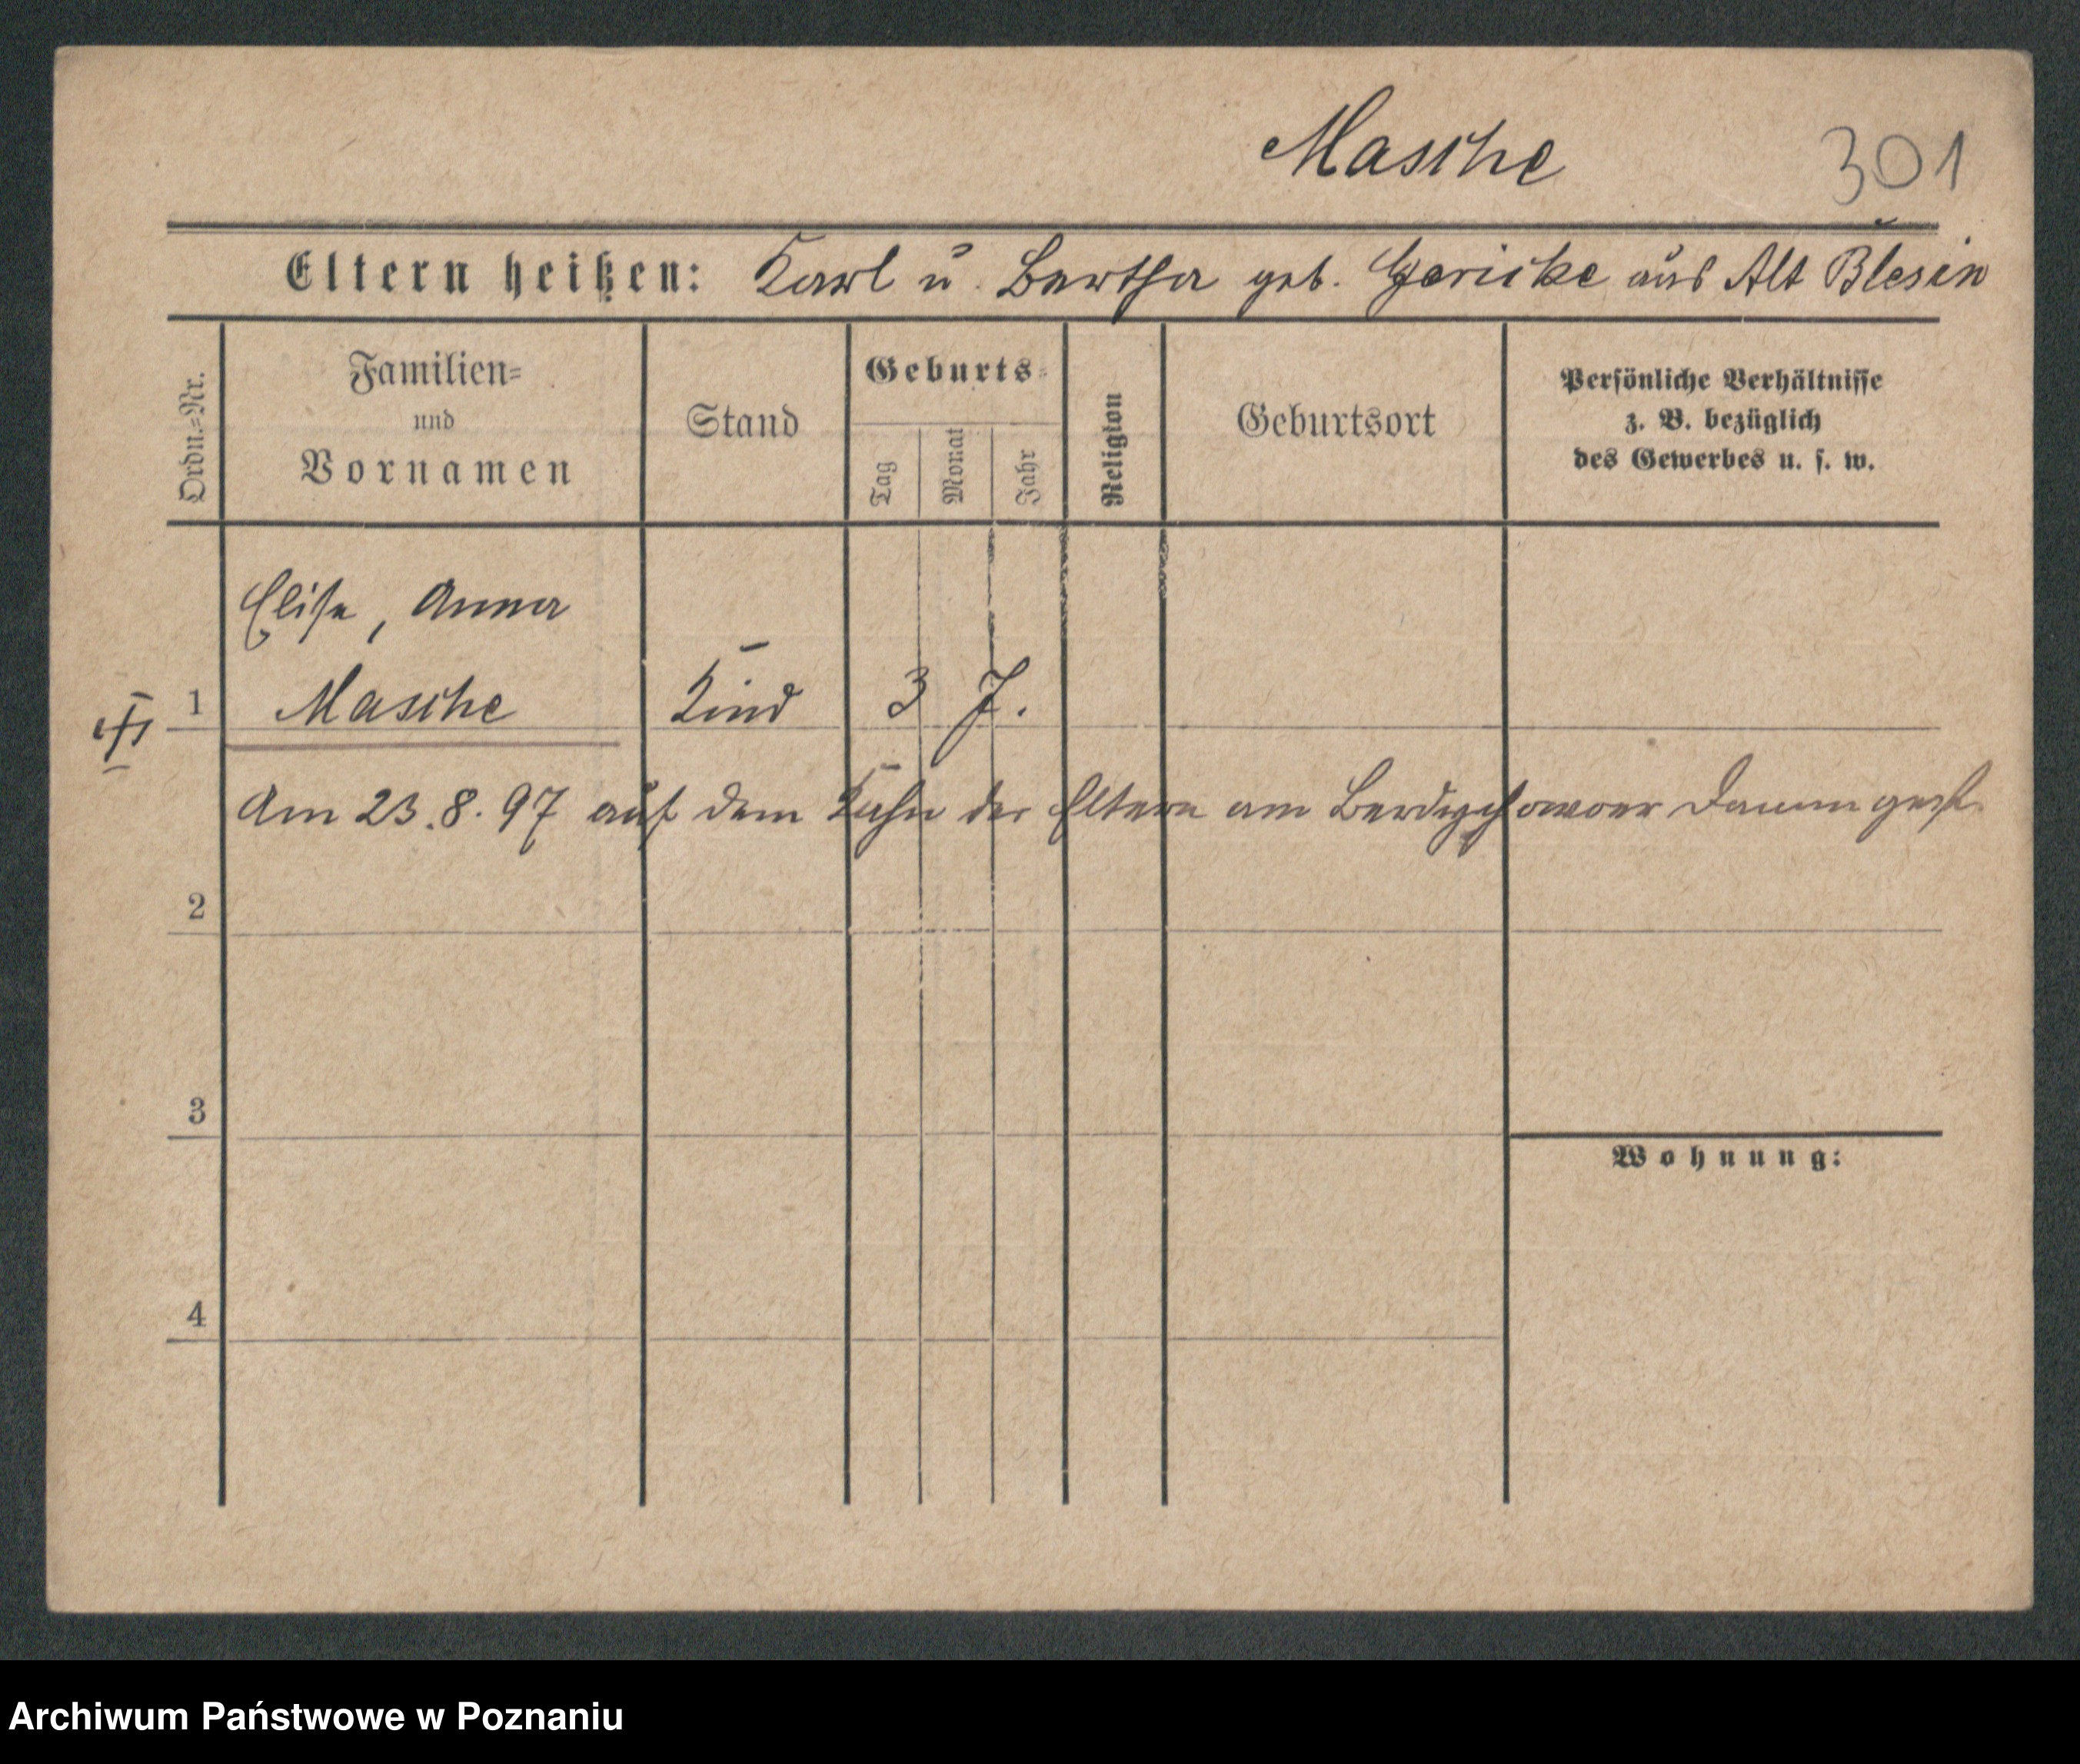 Masche
301
Eltern heißen: Karl u. Bertha geb. Gericke aus Alt Blesin
Ordn.=Nr.
Familien=
und
Vornamen
Stand
Geburts=
Tag
Monat
Jahr
Religion
Geburtsort
Persönliche Verhältnisse
z. B. bezüglich
des Gewerbes u. s. w.
Elise, Anna
1 Masche Kind 3 J.
Am 23.8.97 auf dem Kahn der Eltern am Berdychowoer Damm gest.
2
3
Wohnung:
4
Archiwum Państwowe w Poznaniu